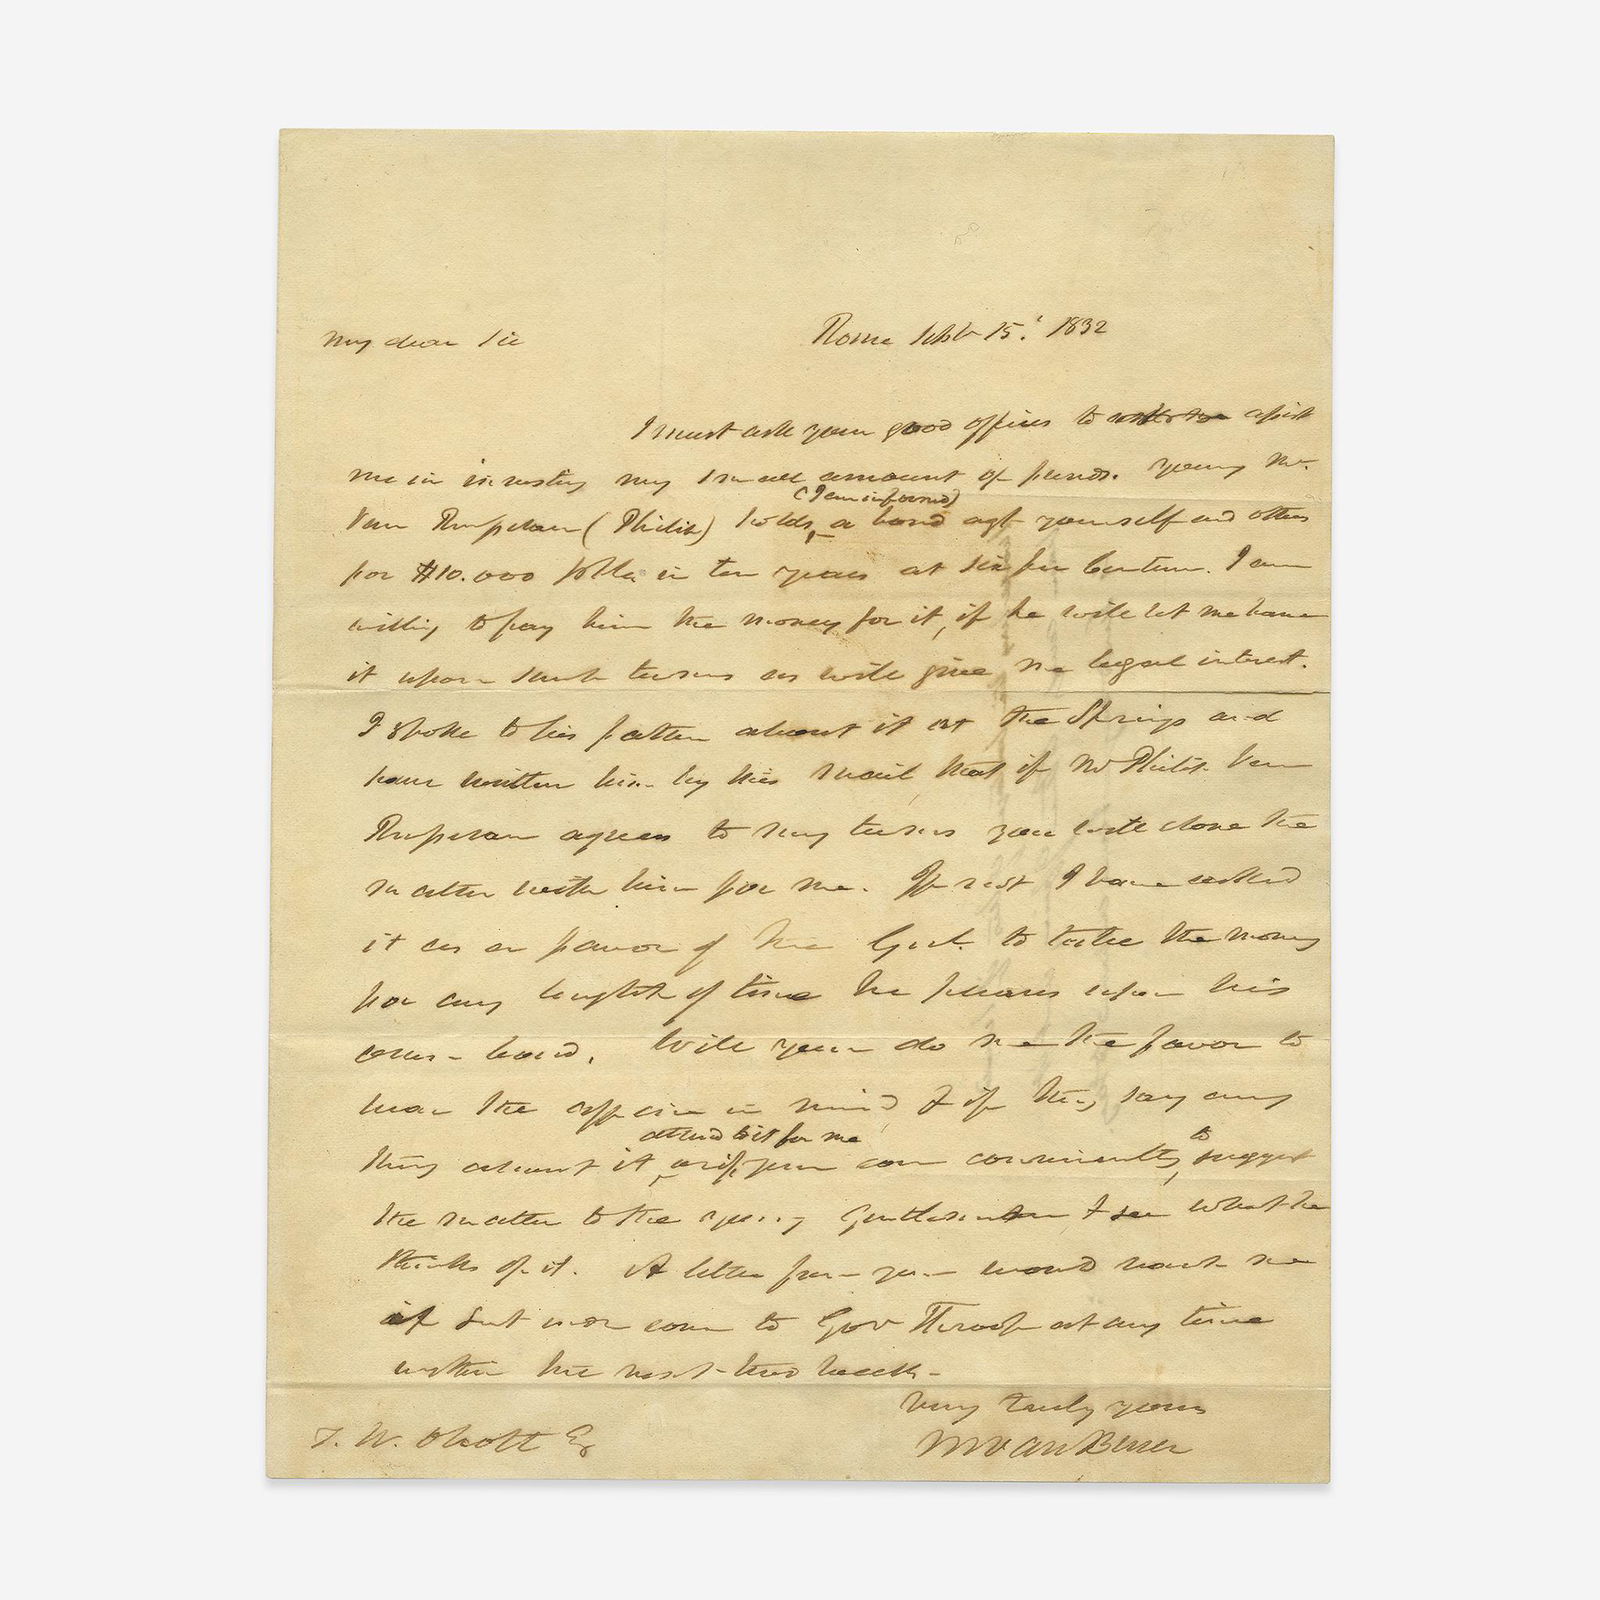 My dear Sir
Rome Septr 15. 1832
I must ask your good offices to assist
me in investing my small amount of funds. Young Mr.
(I am informed)
Van Rensselaer (Philip) holds a bond agt yourself and others
for $10.000 in ten years at six per Centum. I am
willing to pay him the money for it, if he will let me have
it upon such terms as will give me legal interest.
I spoke to his father about it at the Springs and
have written him by this mail that if Mr Philip Van
Rensselaer agrees to my terms you will close the
matter with him for me. If not I have asked
it as a favor of the Genl. to take the money
for any length of time he pleases upon his
own bond. Will you do me the favor to
bear the affair in mind & if they say any
attend to it for me
thing about it or if you can conveniently suggest
to
the matter to the young Gentleman & see what he
thinks of it. A letter from you would reach me
if sent under cover to Gov Throop at any time
within the next two weeks -
Very truly yours
M Van Buren
T. W. Olcott Esq